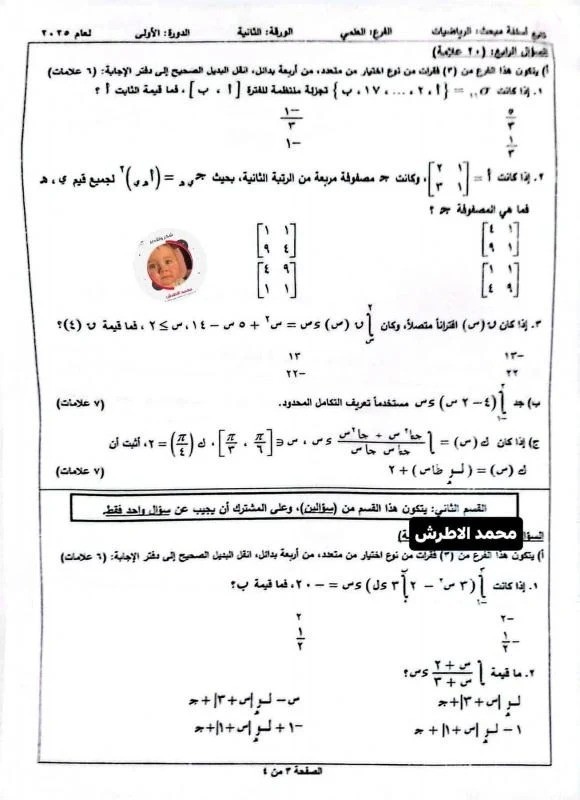 تابع أسئلة مبحث: الرياضيات الفرع: العلمي الورقة: الثانية الدورة: الأولى لعام ٢٠٢٥
السؤال الرابع: (٢٠ علامة)
أ) يتكون هذا الفرع من (٣) فقرات من نوع اختيار من متعدد، من أربعة بدائل، انقل البديل الصحيح إلى دفتر الإجابة: (٦ علامات)
١. إذا كانت = {أ ، ٢ ، ... ، ١٧ ، ب} تجزئة منتظمة للفترة [أ ، ب] ، فما قيمة الثابت أ ؟
٥/٣ -١/٣
١/٣ -١
٢. إذا كانت أ = [٢ ١ ٣ ١] ، وكانت جـ مصفوفة مربعة من الرتبة الثانية، بحيث جـ ي هـ = (أ هـ ي)٢ لجميع قيم ي ، هـ
فما هي المصفوفة جـ ؟
[٤ ١ ٩ ١] [١ ١ ٩ ٤]
[١ ١ ٤ ٩] [٤ ٩ ١ ١]
شكر وتقدير
محمد الاطرش
٣. إذا كان ں(س) اقتراناً متصلاً، وكان ∫ ں(س) ءس = س٢ + ٥ س - ١٤ ، س ≥ ٢ ، فما قيمة ں(٤)؟
-١٣ ١٣
٢٢ -٢٢
ب) جد ∫ (٤ - ٢ س) ءس مستخدماً تعريف التكامل المحدود. (٧ علامات)
ج) إذا كان ك(س) = ∫ (جتا٢س + جا٢س)/(جتاس جاس) ءس ، س ∈ [π/٦ ، π/٣] ، ك(π/٤) = ٢، أثبت أن
ك(س) = (لــو ظاس) + ٢ (٧ علامات)
القسم الثاني: يتكون هذا القسم من (سؤالين)، وعلى المشترك أن يجيب عن سؤال واحد فقط.
محمد الاطرش
أ) يتكون هذا الفرع من (٣) فقرات من نوع اختيار من متعدد، من أربعة بدائل، انقل البديل الصحيح إلى دفتر الإجابة: (٦ علامات)
١. إذا كانت ∫ (٣ س٢ - ٢ ∫ ٣ ءل) ءس = -٢٠، فما قيمة ب؟
-٢ ٢
-١/٢ ١/٢
٢. ما قيمة ∫ (س + ٢)/(س + ٣) ءس؟
لــو |س + ٣| + جـ س - لــو |س + ٣| + جـ
١ - لــو |س + ١| + جـ -١ + لــو |س + ١| + جـ
الصفحة ٣ من ٤